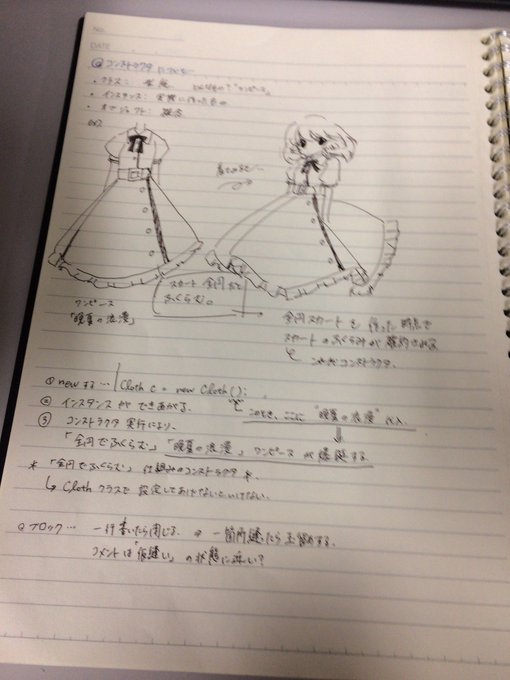 NO.
DATE
◎ コンストラクタについて
・クラス: 概念
・インスタンス: 実際に作ったもの
・オブジェクト: 総合
着てみると…
スカート全円なので
ふくらむ。
ワンピース
「晩夏の浪漫」
全円スカートを作った時点で
スカートのふくらみが確約される
これがコンストラクタ。
① newする… Cloth c = new Cloth();
② インスタンスができあがる。
このとき、ここに "晩夏の浪漫" 代入
③ コンストラクタ実行により、
「全円でふくらむ」「晩夏の浪漫」ワンピースが爆誕する
* 「全円でふくらむ」仕組みのコンストラクタを
↳ Clothクラスで設定してあげないといけない。
◎ ブロック… 一行書いたら閉じる。⇒ 一箇所縫ったら玉留めする。
コメントは「仮縫い」の状態に近い?